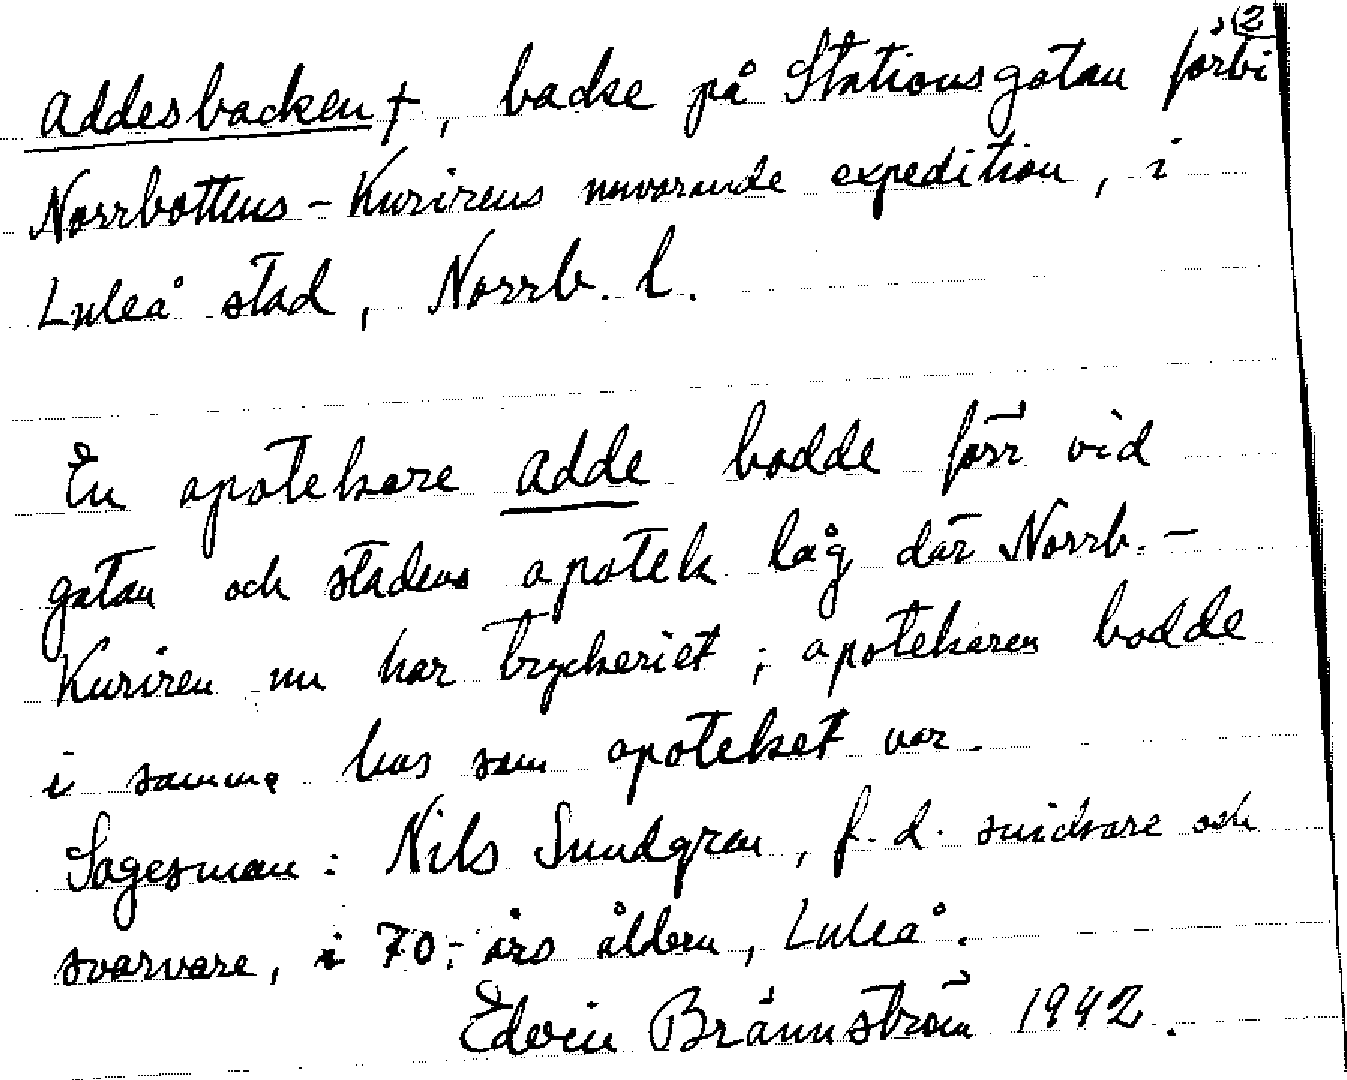 (2
Addesbacken †, backe på Stationsgatan förbi
Norrbottens-Kurirens nuvarande expedition, i
Luleå stad, Norrb. l.
En apotekare Adde bodde förr vid
gatan och stadens apotek låg där Norrb.-
Kuriren nu har tryckeriet; apotekaren bodde
i samma hus som apoteket var.
Sagesman: Nils Sundgren, f.d. snickare och
svarvare, i 70-års åldern, Luleå.
Edvin Brännström 1942.